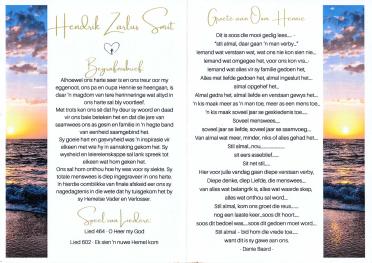 Hendrik Zarlus Smit
Begrafnisbrief
Alhoewel ons harte seer is en ons treur oor my
eggenoot, ons pa en oupa Hennie se heengaan, is
daar 'n magdom van tere herinneringe wat altyd in
ons harte sal bly voortleef.
Met trots kan ons sê dat hy deur sy woord en daad
vir ons baie beteken het en dat die jare van
saamwees ons as gesin en familie in 'n hegte band
van eenheid saamgebind het.
Sy goeie hart en gasvryheid was 'n inspirasie vir
elkeen met wie hy in aanraking gekom het. Sy
wysheid en lewenskennis sal lank spreek tot
elkeen wat hom geken het.
Ons sal hom onthou hoe hy was voor sy siekte. Sy
totale menswees is diep ingegraveer in ons harte.
In hierdie oomblikke van finale afskeid eer ons sy
nagedagtenis in die wete dat hy tuisgekom het by
sy Hemelse Vader en Verlosser.
Speel van Liedere:
Lied 464 - O Heer my God
Lied 602 - Ek sien 'n nuwe Hemel kom
Groete aan Oom Hennie
Dit is soos die mooi gedig lees.... -
"stil almal, daar gaan 'n man verby..."
Iemand wat verstaan wat, wat ons nie kon sien nie...
Iemand wat omgegee het, vir ons kon vra...
Iemand wat alles vir sy familie gedoen het,
Alles met liefde gedoen het, almal ingesluit het...
almal opgehef het...
Almal gedra het, almal liefde en verstaan gewys het...
'n kis maak meer as 'n man toe, meer as een mens toe...
'n kis maak soveel jaar se geskiedenis toe...
Soveel menswees...
soveel jaar se liefde, soveel jaar se saamvoeg...
Van almal wat meer, minder, niks of alles gehad het...
Stil almal...nou...
sit eers asseblief......
Sit net stil.....
Hier voor julle vandag gaan diepe verstaan verby,
Diepe denke, diep Liefde, die menswees...
van alles wat belangrik is, alles wat waarde skep,
alles wat onthou sal word...
Stil almal, kom ons groet die reus.....
nog een laaste keer...soos dit hoort....
soos dit bedoel was....soos dit gedoen moet word...
Stil almal - bid hom die vrede toe....
want dit is sy gawe aan ons.
- Danie Baard -